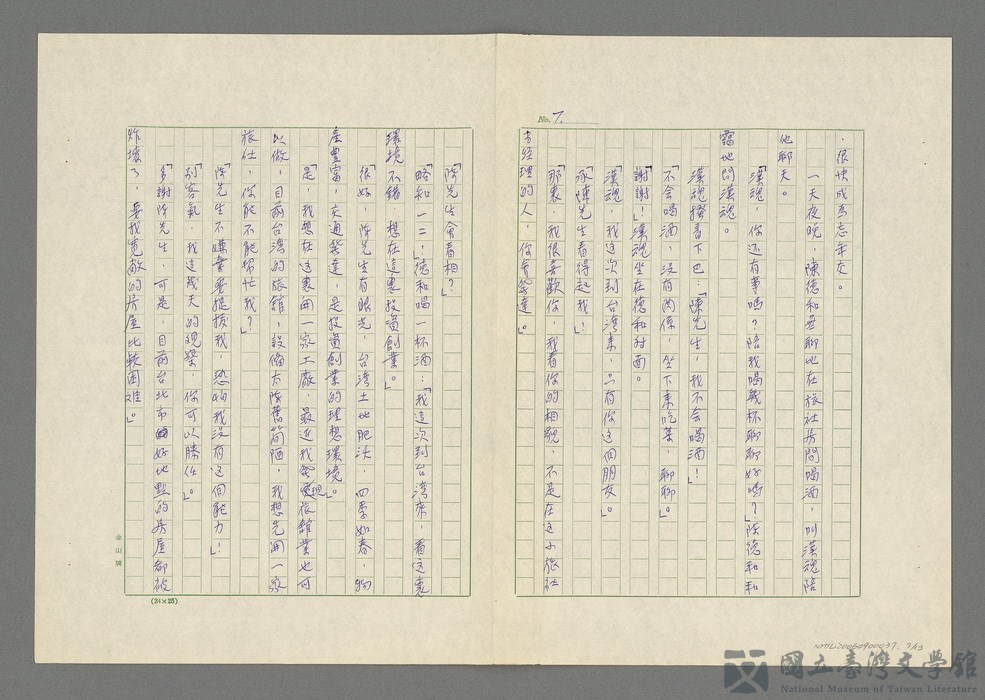 No. 7.
，很快成為忘年交。
一天夜晚，陳德和無聊地在旅社房間喝酒，叫漢魂陪
他聊天。
「漢魂，你还有事嗎？陪我喝幾杯聊聊好嗎？」陳德和和
靄地問漢魂。
漢魂搔着下巴：「陳先生，我不会喝酒！」
「不会喝酒，沒有関係，坐下來吃菜，聊聊。」
「謝謝！」漢魂坐在德和対面。
「漢魂，我这次到台湾來，只有你这個朋友。」
「承陳先生看得起我！」
「那裏，我很喜歡你，我看你的相貌，不是在这小旅社
当经理的人，你會發達。」
「陳先生會看相？」
「略知一二，」德和喝一杯酒：「我這次到台湾來，看这裏
環境不錯，想在這裏投資創業。」
「很好，陳先生有眼光，台湾土地肥沃，四季如春，物
產豐富，交通發達，是投資創業的理想環境。」
「是，我想在这裏開一家工廠，最近我發現旅館業也可
以做，目前台湾的旅館，設備太陳舊簡陋，我想先開一家
旅社，你能不能帮忙我？」
「陳先生不嫌棄要提拔我，恐怕我沒有这個能力！」
「別客氣，我这幾天的观察，你可以勝任。」
「多謝陳先生，可是，目前台北市好地點的房屋都被
炸壞了，要找寬敞的房屋比較困难。」
金山牌
(24×25)
NMTL20060900037. 7/13
國立臺灣文學館
National Museum of Taiwan Literature